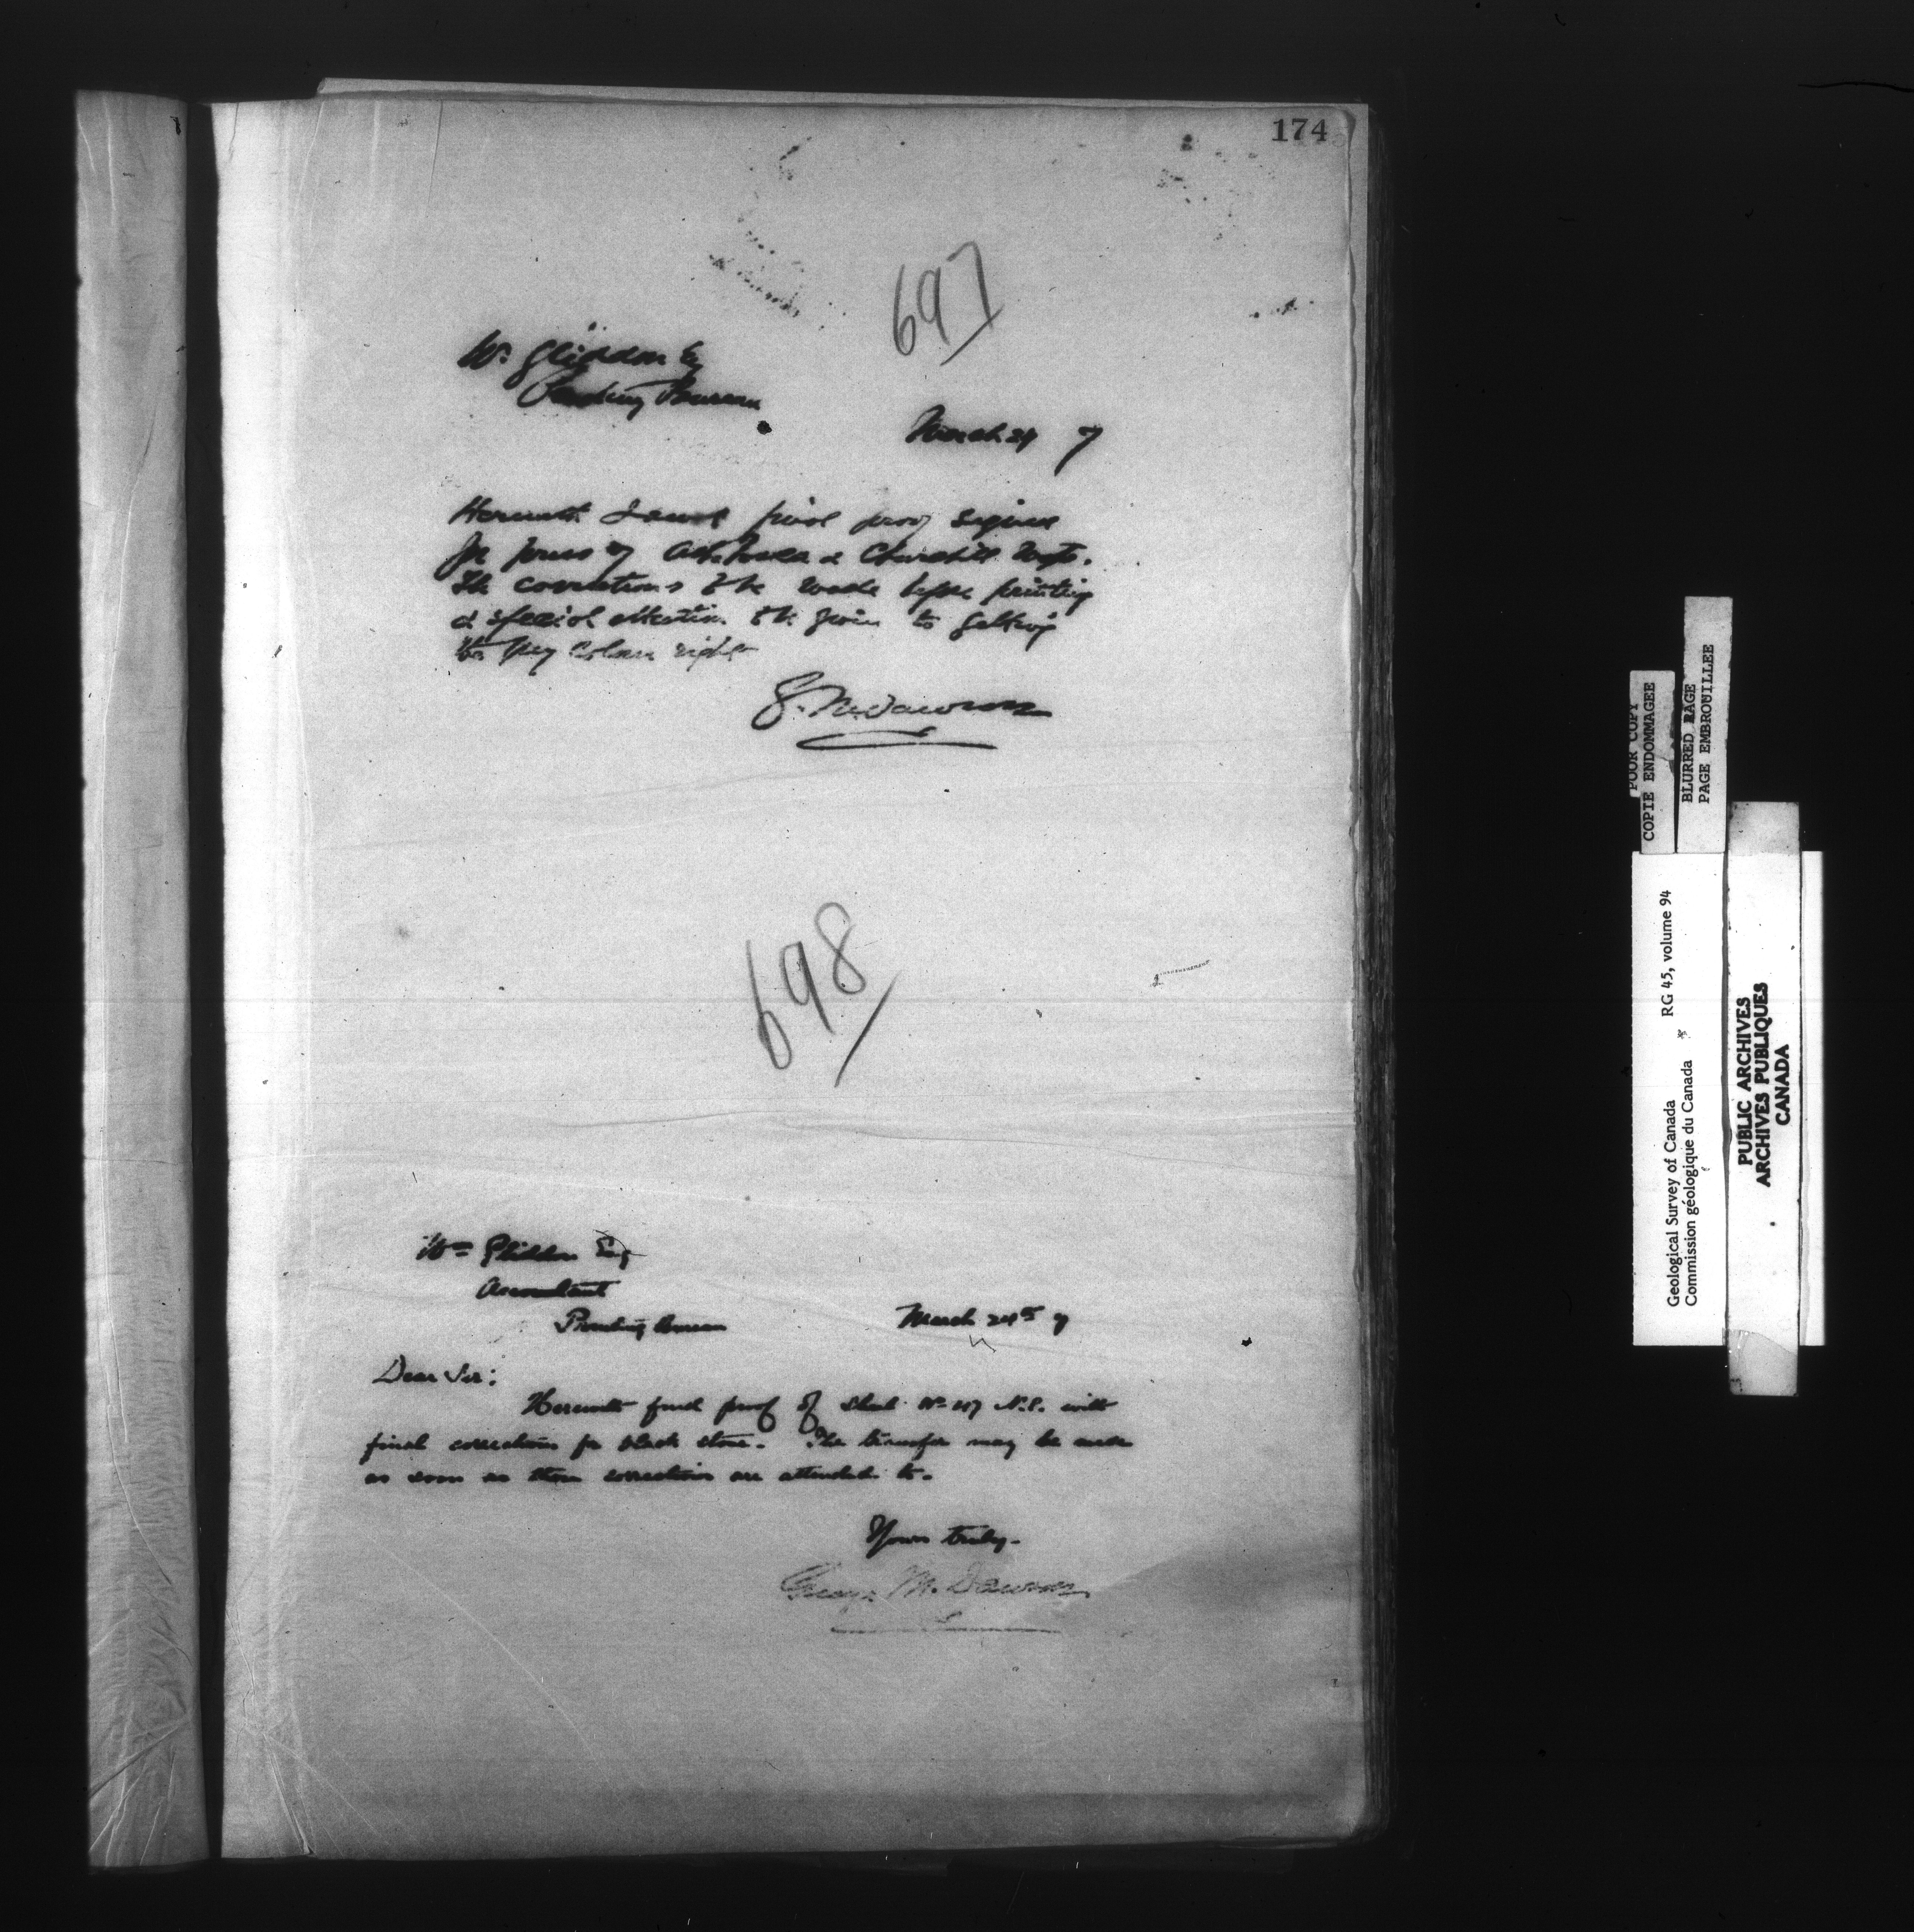 174
697
W. Gliddon Esq
Printing Bureau
March 24 7
Herewith I send final proof signed
for press of Athabasca & Churchill Maps.
The corrections to be made before printing
& special attention to be given to getting
the grey colour right
G. M. Dawson
698
Wm Gliddon Esq
Accountant
Printing Bureau
March 24th 7
Dear Sir:
Herewith final proof of Sheet No 47 N.S. with
final corrections for black stone. The transfer may be made
as soon as these corrections are attended to.
Yours truly.
George M. Dawson
POOR COPY
COPIE ENDOMMAGEE
BLURRED PAGE
PAGE EMBROUILLEE
Geological Survey of Canada RG 45, volume 94
Commission géologique du Canada
PUBLIC ARCHIVES
ARCHIVES PUBLIQUES
CANADA